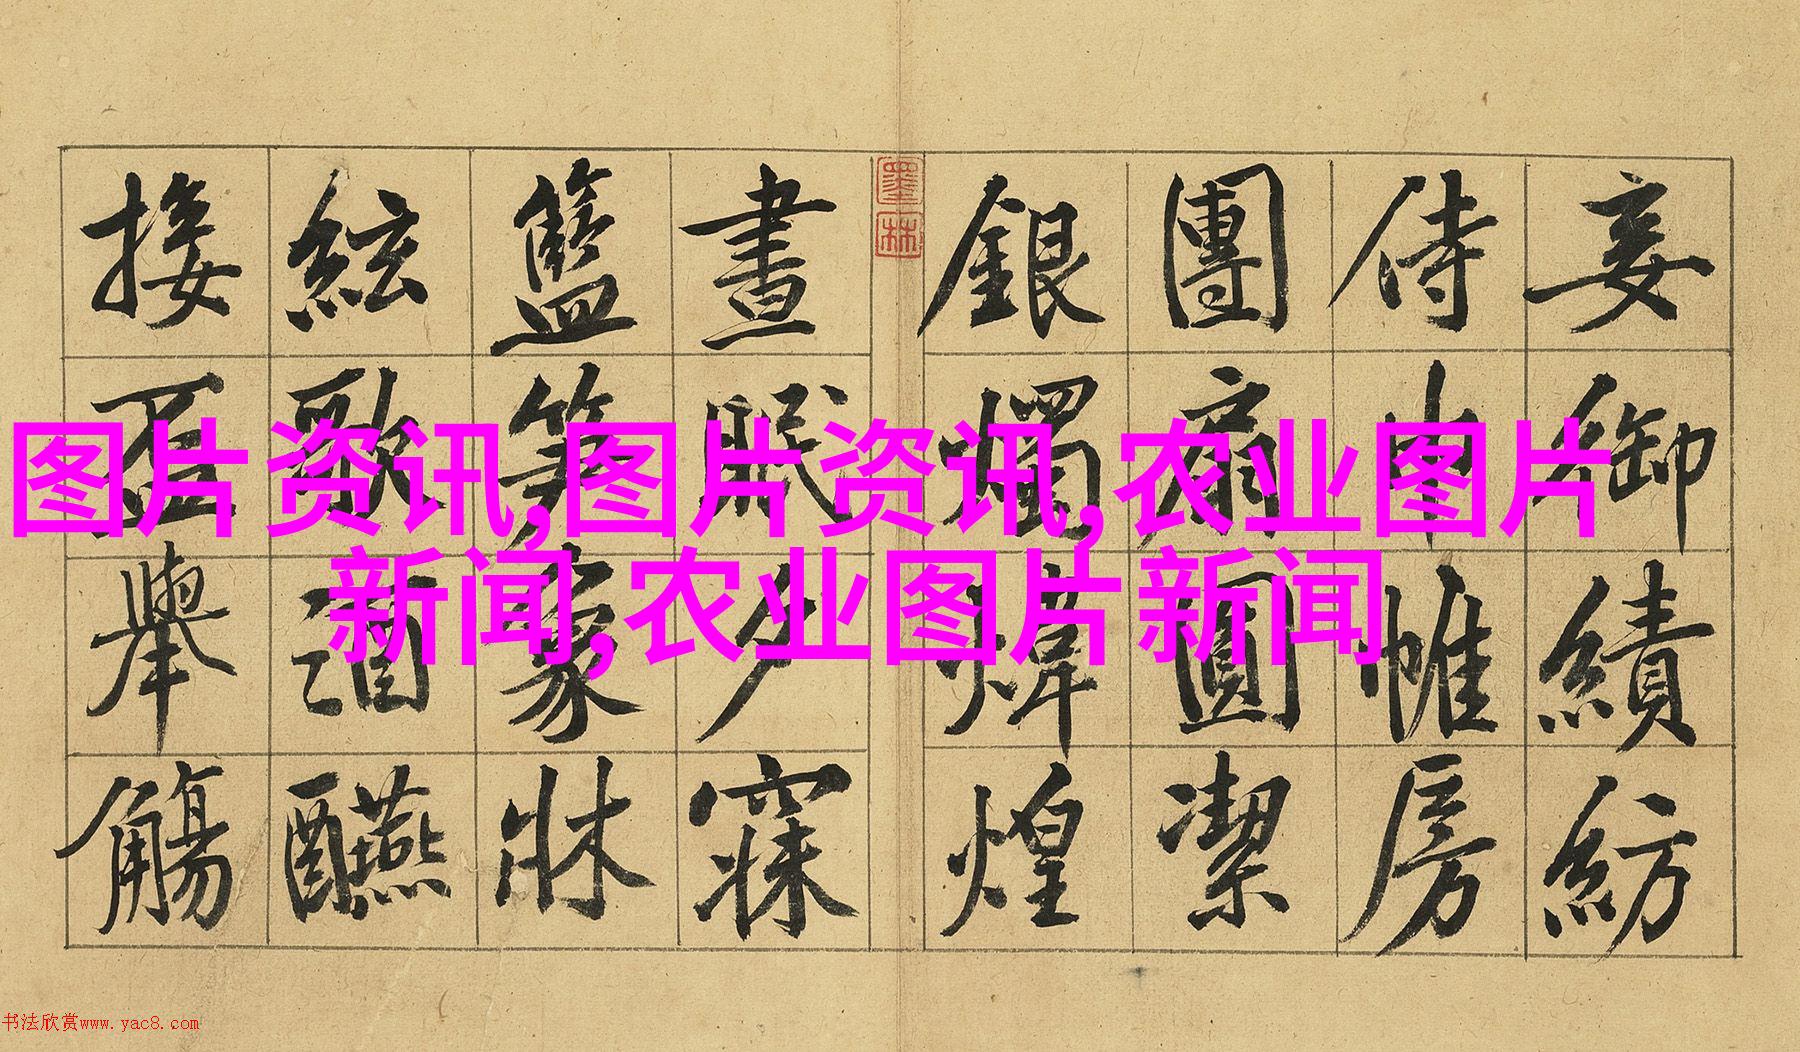 妾御績紡
侍巾帷房
團扇圓潔
銀燭煒煌
墨林
晝眠夕寐
籃笋象牀
絃歌酒醼
接盃舉觴
图片资讯,图片资讯,农业图片
新闻,农业图片新闻
书法欣赏www.yac8.com